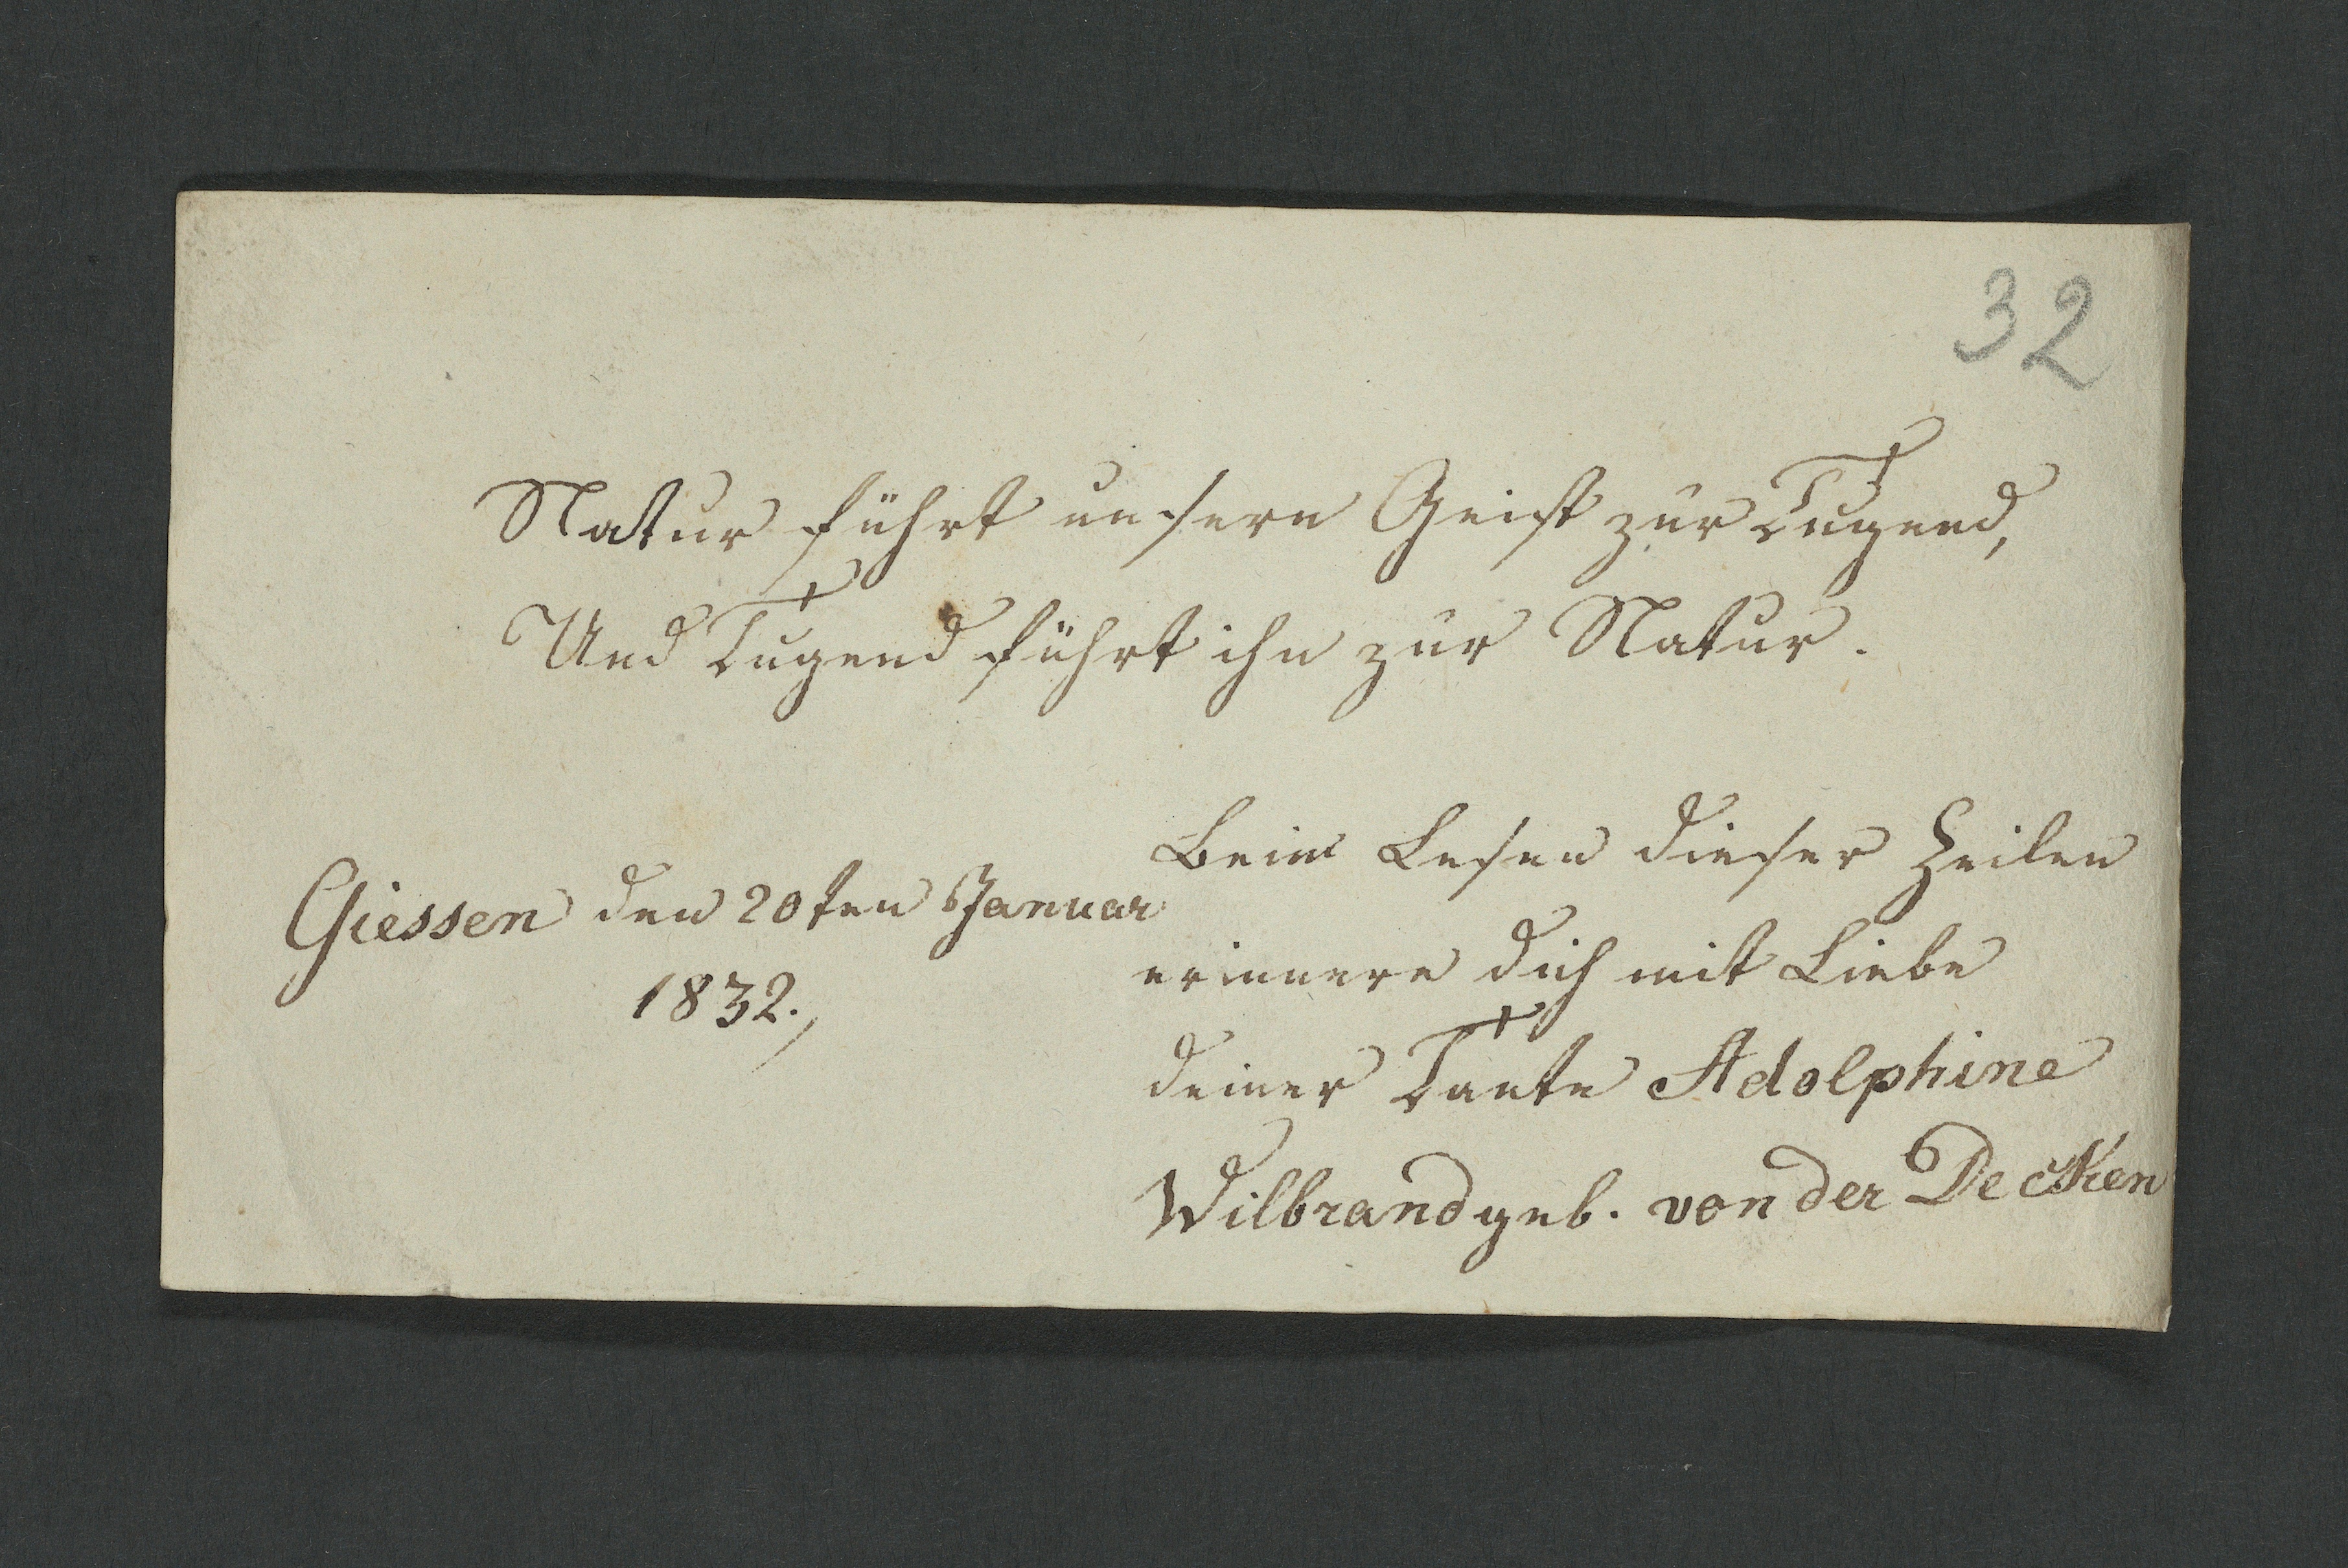 32
Natur führt unsern Geist zur Tugend,
Und Tugend führt ihn zur Natur.
Giessen den 20ten Januar
1832.,
Beim Lesen dieser Zeilen
erinnere dich mit Liebe
deiner Tante Adolphine
Wilbrand geb. von der Decken